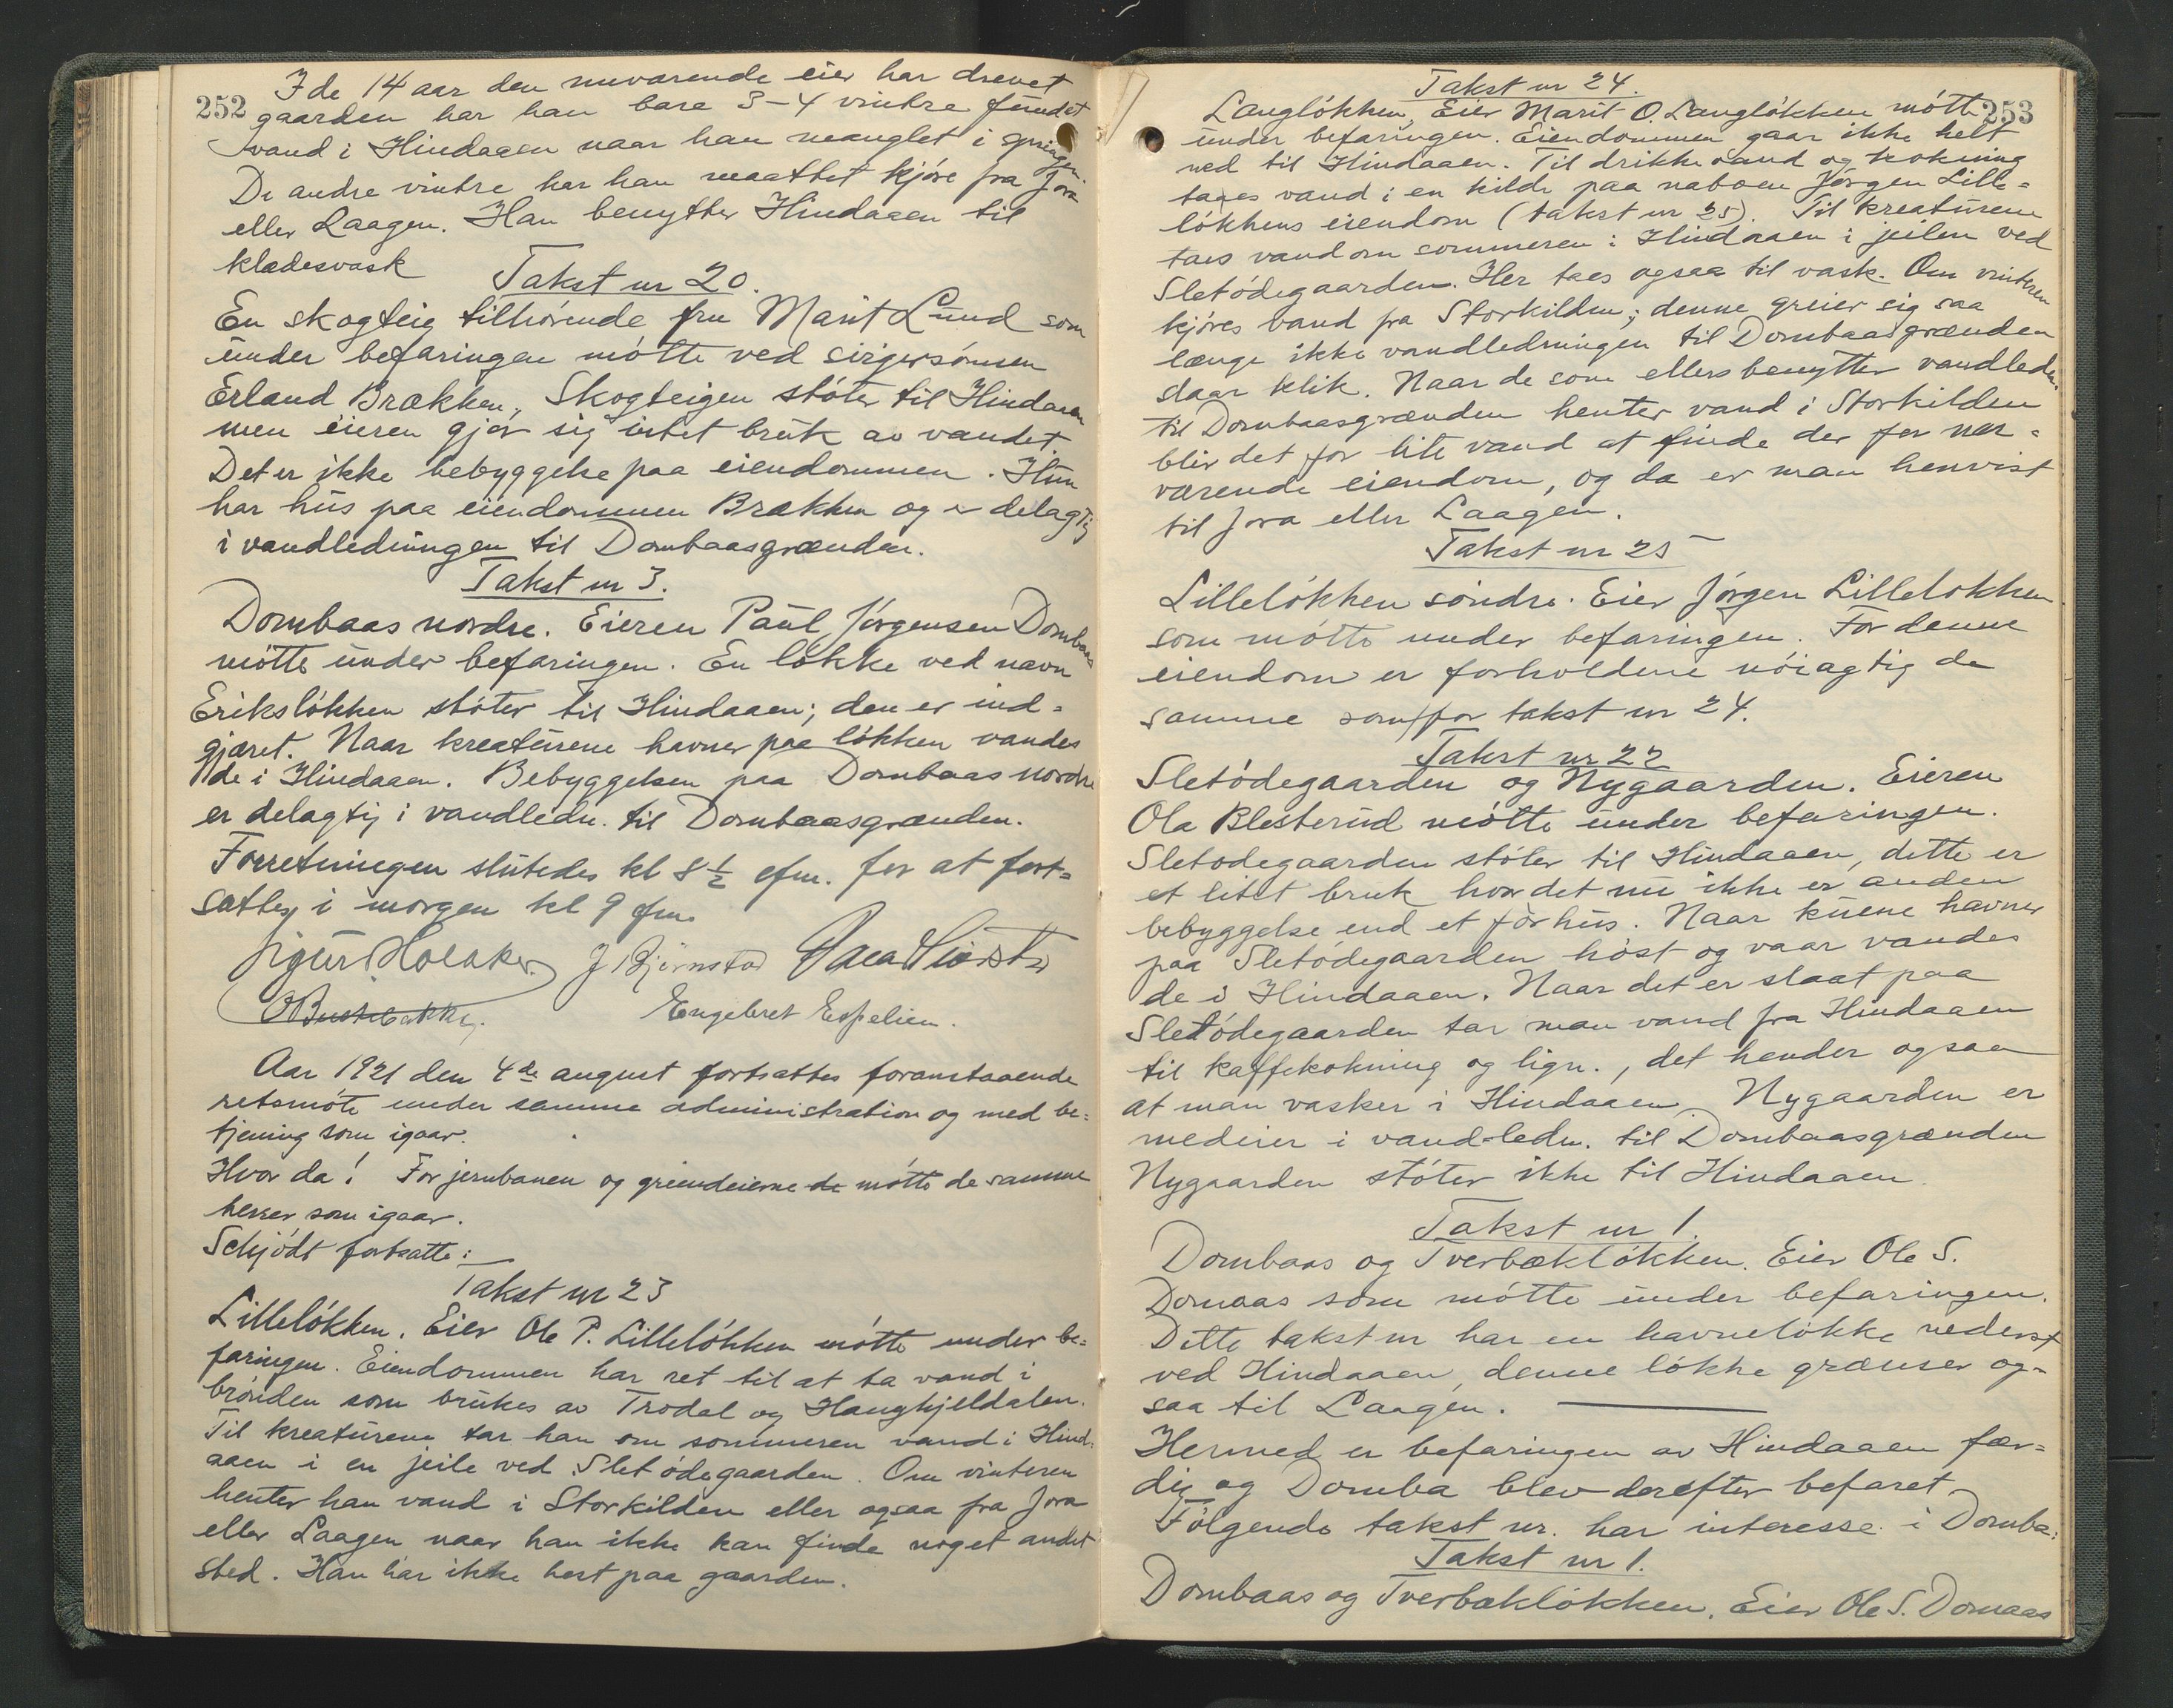 252
I de 14 aar den nuværende eier har drevet
gaarden har han bare 3-4 vintre fundet
vand i Hindaaen naar han manglet i springen.
De andre vintre har han maattet kjøre fra Jora
eller Laagen. Han benytter Hindaaen til
klædesvask
Takst nr 20.
En skogteig tilhørende fru Marit Lund som
under befaringen møtte ved svigersønnen
Erland Brækken, Skogteigen støter til Hindaaen
men eieren gjør sig intet bruk av vandet.
Det er ikke bebyggelse paa eiendommen. Hun
har hus paa eiendommen Brækken og er delagtig
i vandledningen til Dombaasgrænden.
Takst nr 3.
Dombaas nordre. Eieren Paul Jørgensen Dombaas
møtte under befaringen. En løkke ved navn
Eriksløkken støter til Hindaaen; den er ind=
gjæret. Naar kreaturene havner paa løkken vandes
de i Hindaaen. Bebyggelsen paa Dombaas nordre
er delagtig i vandledn. til Dombaasgrænden.
Forretningen sluttedes kl 8 1/2 efm. for at fort=
sættes i morgen kl 9 fm.
J Bjørnstad
Engebret Espelien.
Aar 1921 den 4de august fortsattes foranstaaende
retsmøte under samme administration og med be=
tjening som igaar.
Hvor da! For jernbanen og grundeierne de møtte de samme
herrer som igaar.
Schjødt fortsatte:
Takst nr 23
Lilleløkken. Eier Ole P. Lilleløkken møtte under be=
faringen. Eiendommen har ret til at ta vand i
brønden som brukes av Trodal og Haugkjeldalen.
Til kreaturene tar han om sommeren vand i Hind=
aaen i en jeile ved Sletødegaarden. Om vinteren
henter han vand i Storkilden eller ogsaa fra Jora
eller Laagen naar han ikke kan finde noget andet
sted. Han har ikke hest paa gaarden.
253
Takst nr 24.
Langløkken, Eier Marit O. Langløkken møtte
under befaringen. Eiendommen gaar ikke helt
ned til Hindaaen. Til drikkevand og kokning
taes vand i en kilde paa naboen Jørgen Lille=
løkkens eiendom (takst nr 25). Til kreaturene
taes vand om sommeren i Hindaaen i jeilen ved
Sletødegaarden. Her taes ogsaa til vask. Om vinteren
kjøres vand fra Storkilden; denne greier sig saa
længe ikke vandledningen til Dombaasgrænden
slaar klik. Naar de som ellers benytter vandledn.
til Dombaasgrænden henter vand i Storkilden
blir det for lite vand at finde der for nær=
værende eiendom, og da er man henvist
til Jora eller Laagen.
Takst nr 25
Lilleløkken søndre. Eier Jørgen Lilleløkken
som møtte under befaringen. For denne
eiendom er forholdene nøiagtig de
samme som for takst nr 24.
Takst nr 22
Sletødegaarden og Nygaarden. Eieren
Ola Blesterud møtte under befaringen.
Sletødegaarden støter til Hindaaen, dette er
et litet bruk hvor det nu ikke er anden
bebyggelse end et fòrhus. Naar kuene havner
paa Sletødegaarden høst og vaar vandes
de i Hindaaen. Naar det er slaat paa
Sletødegaarden tar man vand fra Hindaaen
til kaffekokning og lign., det hender ogsaa
at man vasker i Hindaaen. Nygaarden er
medeier i vand-ledn. til Dombaasgrænden
Nygaarden støter ikke til Hindaaen.
Takst nr 1.
Dombaas og Tverbækløkken. Eier Ole S.
Domaas som møtte under befaringen.
Dette takst nr har en havneløkke nederst
ved Hindaaen, denne løkke grænser og=
saa til Laagen.
Hermed er befaringen av Hindaaen fær=
dig og Domba blev derefter befaret.
Følgende takst nr. har interesse i Domba:
Takst nr 1.
Dombaas og Tverbækløkken. Eier Ole S. Domaas